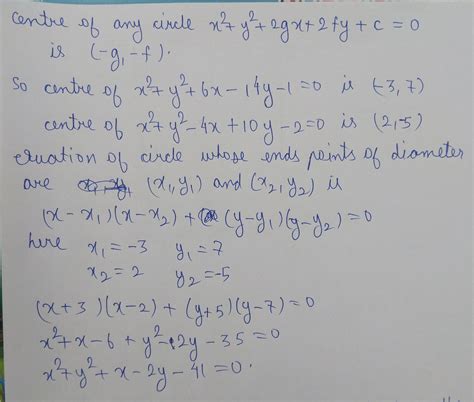 centre of any circle x²+y²+2gx+2fy+c=0
is (-g,-f).
So centre of x²+y²+6x-14y-1=0 is (-3,7)
centre of x²+y²-4x+10y-2=0 is (2,-5)
equation of circle whose ends points of diameter
are (x₁,y₁) and (x₂,y₂) is
(x-x₁)(x-x₂)+(y-y₁)(y-y₂)=0
here x₁=-3 y₁=7
x₂=2 y₂=-5
(x+3)(x-2)+(y+5)(y-7)=0
x²+x-6+y²-2y-35=0
x²+y²+x-2y-41=0.